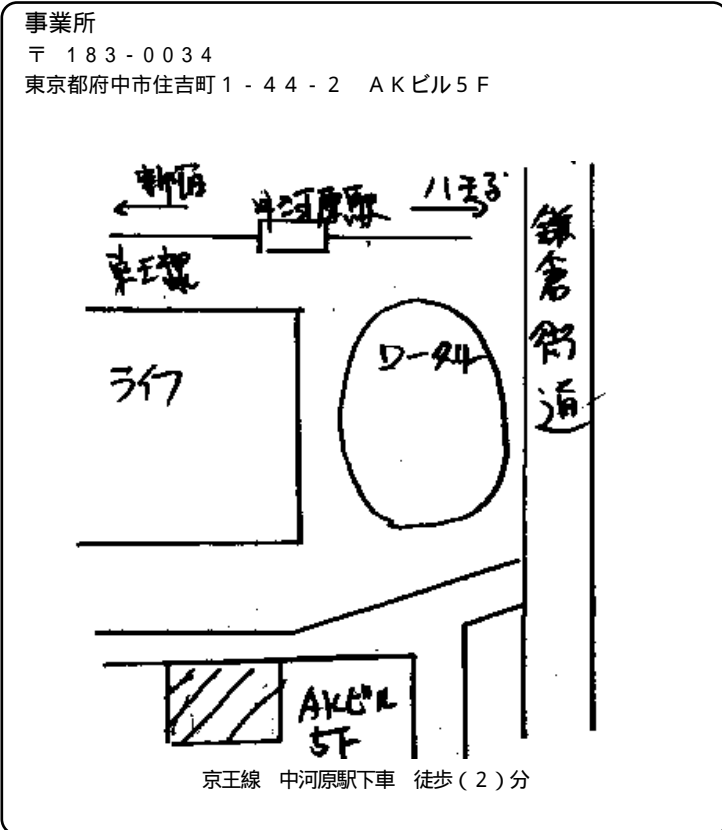 事業所
〒 183-0034
東京都府中市住吉町1-44-2 AKビル5F
新宿
中河原駅
八王子
京王線
鎌倉街道
ロータリー
ライフ
AKビル
5F
京王線 中河原駅下車 徒歩(2)分